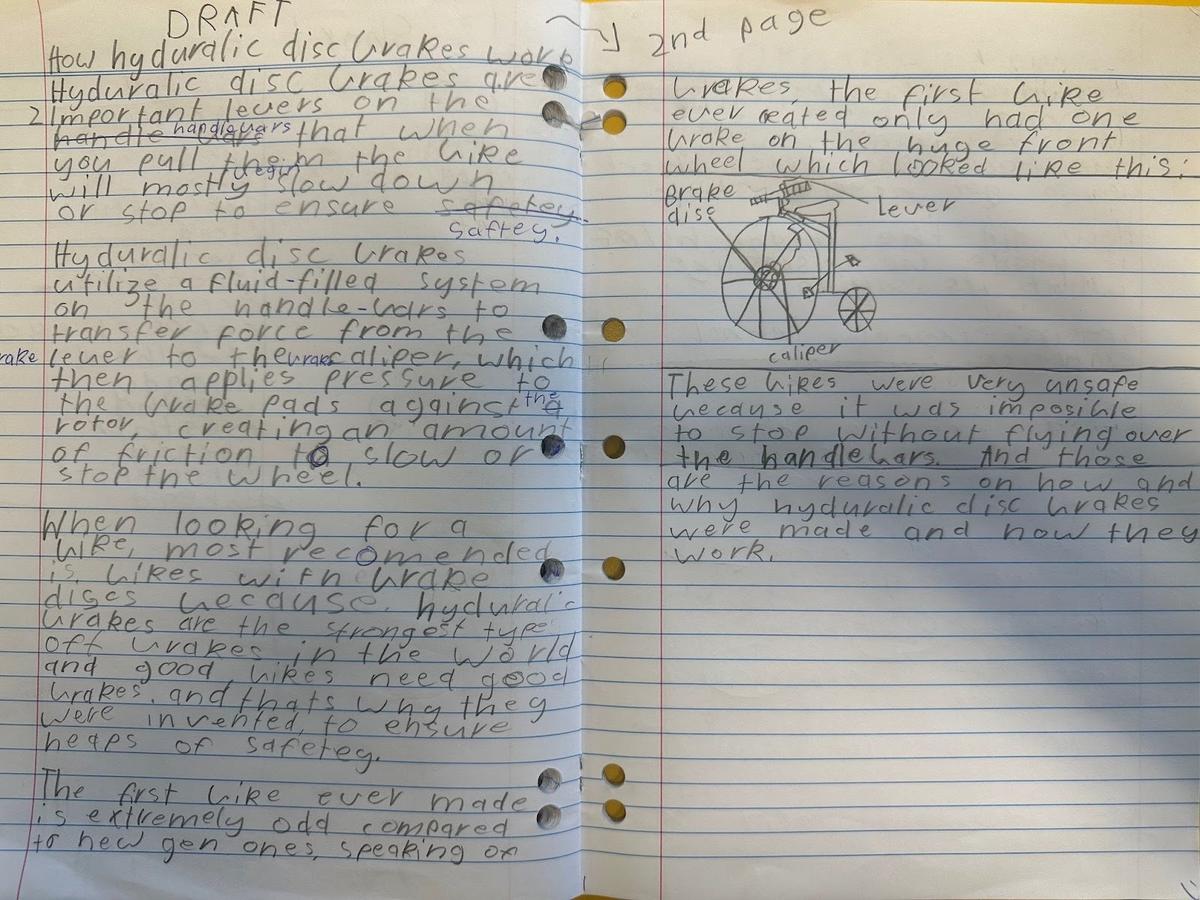 DRAFT
How hyduralic disc brakes work
Hyduralic disc brakes are
2 Important levers on the
handle bars handlebars that when
you pull them the bike
will mostly begin slow down
or stop to ensure safetey
saftey.
Hyduralic disc brakes
utilize a fluid-filled system
on the handle-bars to
transfer force from the
brake lever to the brake caliper, which
then applies pressure to
the brake pads against the
rotor, creating an amount
of friction to slow or
stop the wheel.
When looking for a
bike, most recomended
is bikes with brake
discs because hyduralic
brakes are the strongest type
off brakes in the world
and good bikes need good
brakes. and thats why they
were invented, to ensure
heaps of safetey.
The first bike ever made
is extremely odd compared
to new gen ones, speaking of
2nd page
brakes, the first bike
ever ceated only had one
brake on the huge front
wheel which looked like this:
Brake
disc
Lever
caliper
These bikes were very unsafe
because it was imposible
to stop without flying over
the handlebars. And those
are the reasons on how and
why hyduralic disc brakes
were made and how they
work.